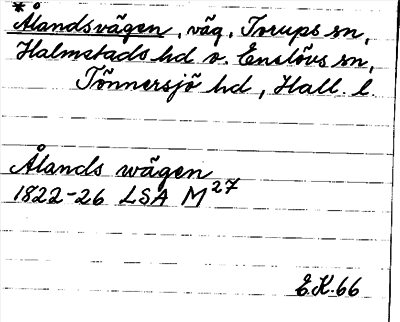 *Ålandsvägen, väg, Torups sn,
Halmstads hd o. Enslövs sn,
Tönnersjö hd, Hall. l.
Ålands wägen
1822-26 LSA M27
E.K. 66